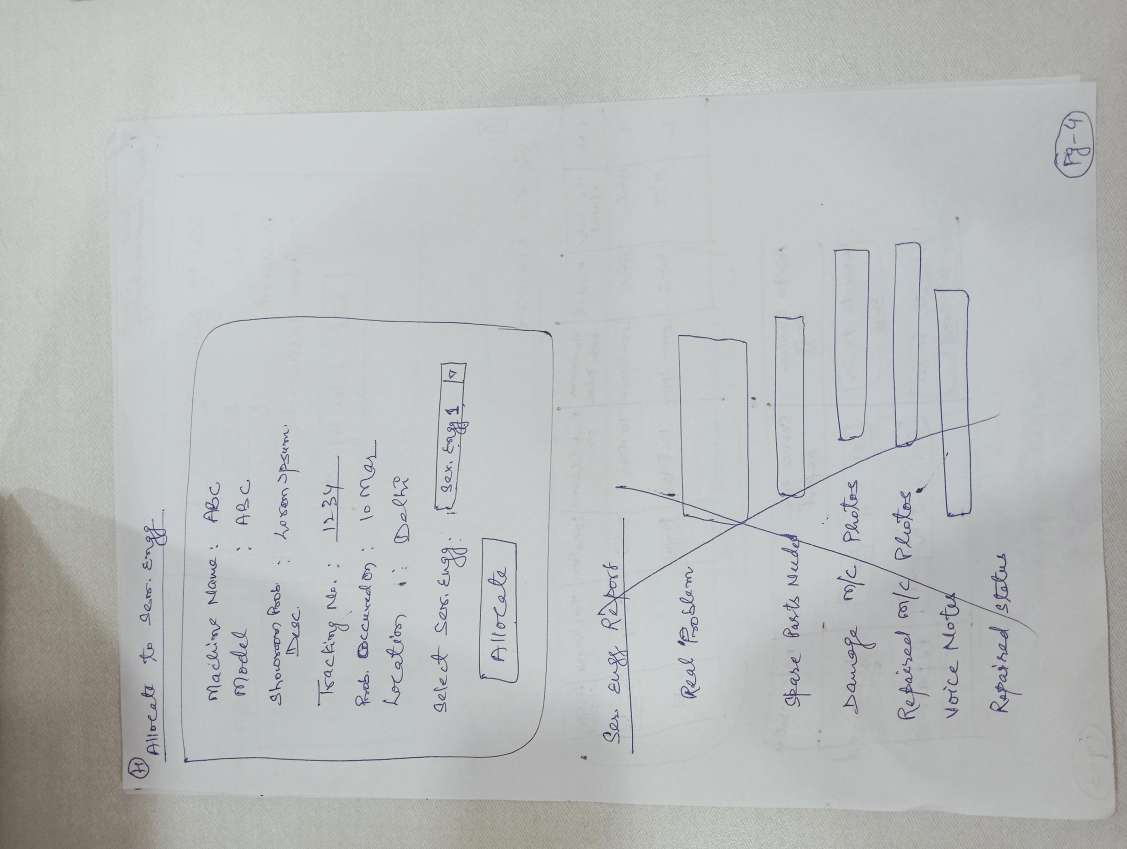 H
Allocate to Ser. Engg
Machine Name : ABC
Model : ABC
Showroom Prob. Desc. : Lorem Ipsum.
Tracking No. : 1234
Prob. Occured on : 10 Mar
Location : Delhi
Select Ser. Engg. : Ser. Engg 1
Allocate
Ser. Engg Report
Real Problem
Spare Parts Needed
Damage m/c Photos
Repaired m/c Photos
Voice Notes
Repaired status
Pg-4